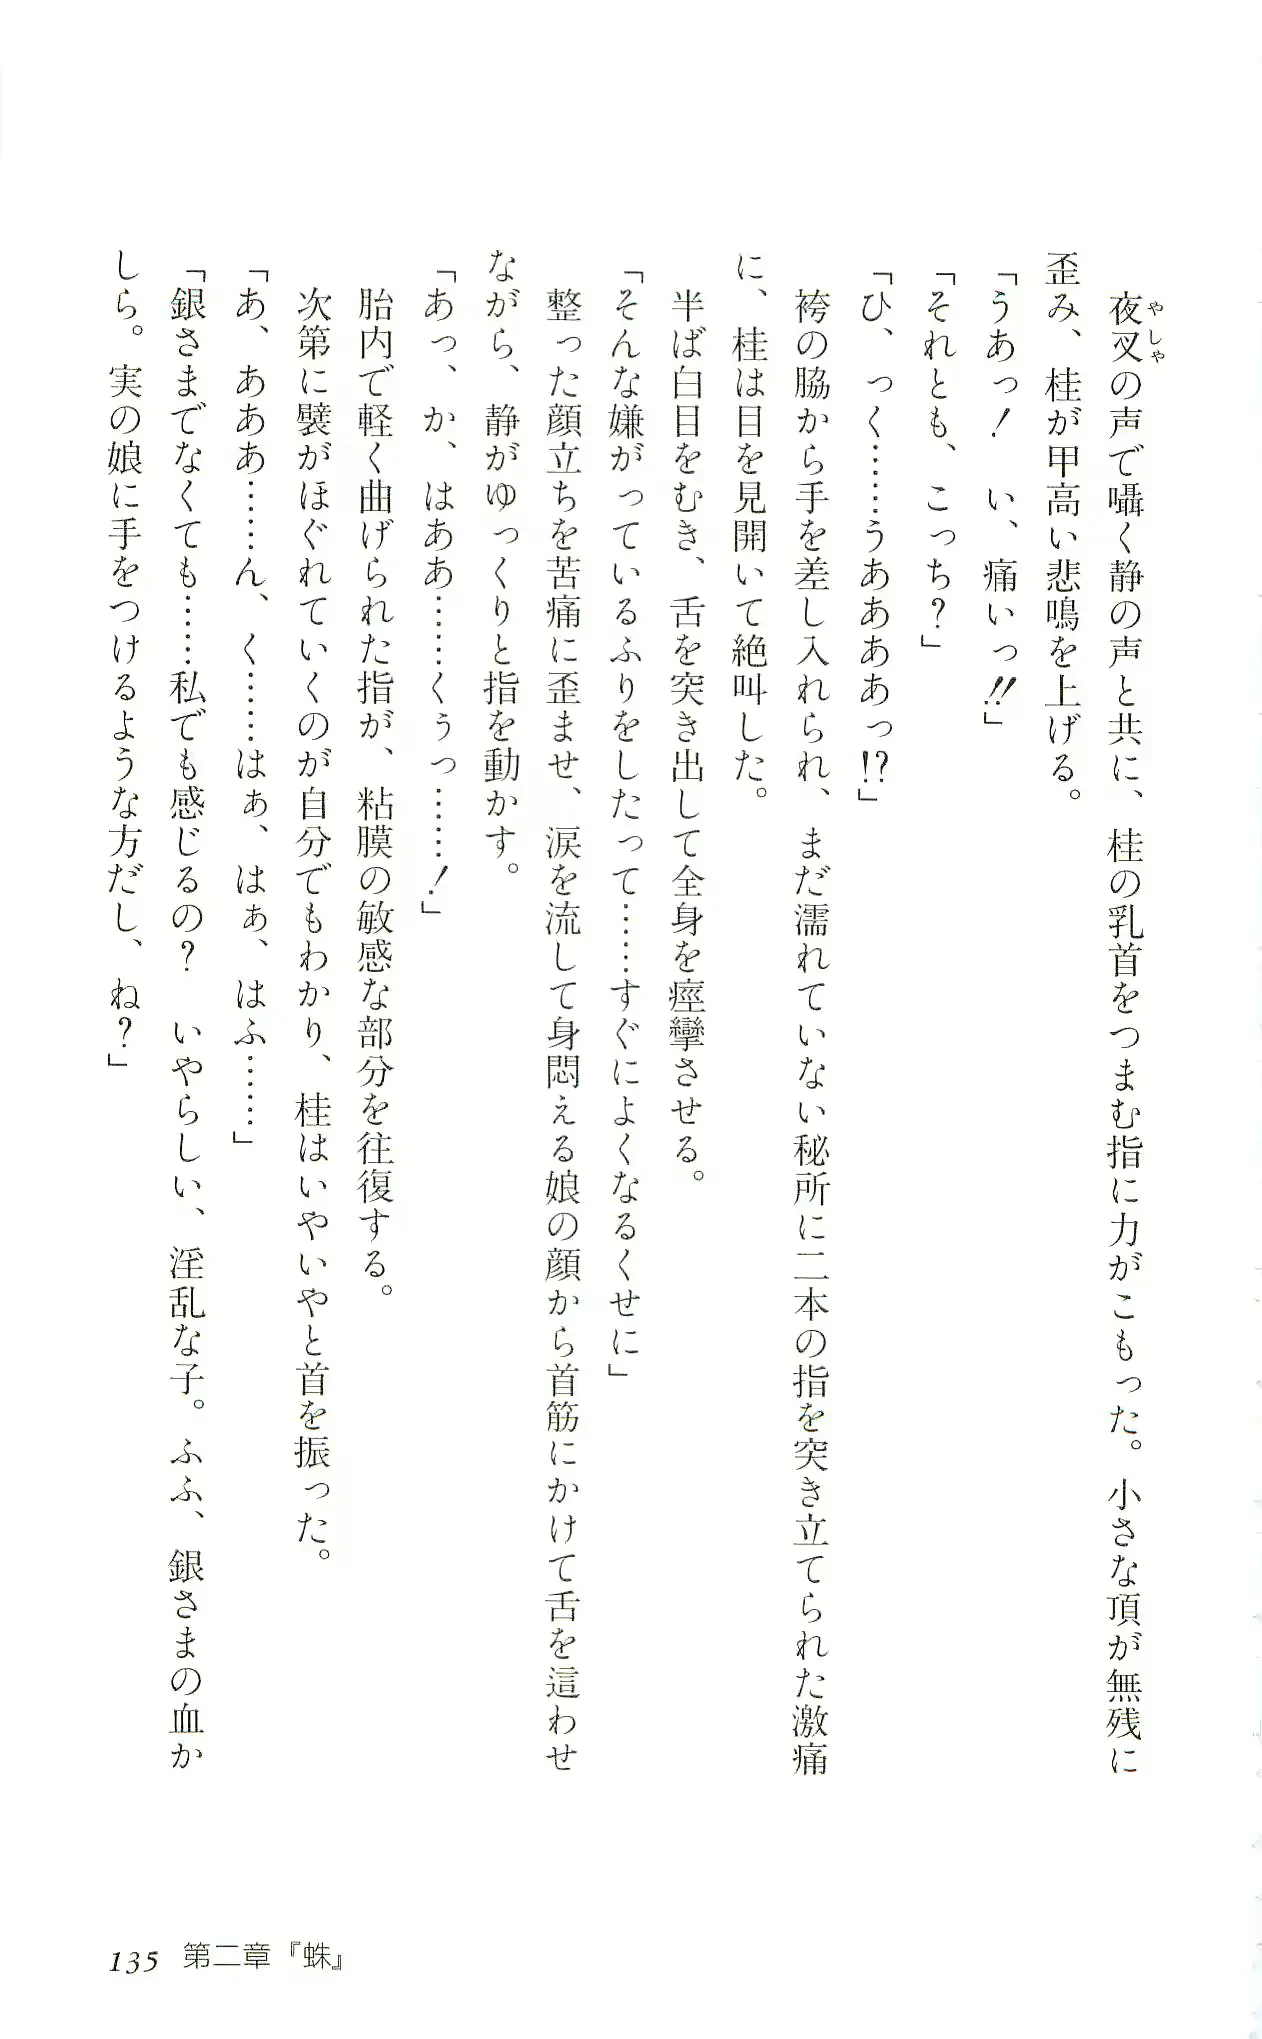 夜叉の声で囁く静の声と共に、桂の乳首をつまむ指に力がこもった。小さな頂が無残に
やしゃ
歪み、桂が甲高い悲鳴を上げる。
「うあっ！　い、痛いっ!!」
「それとも、こっち？」
「ひ、っく……うあああっ!?」
袴の脇から手を差し入れられ、まだ濡れていない秘所に二本の指を突き立てられた激痛
に、桂は目を見開いて絶叫した。
半ば白目をむき、舌を突き出して全身を痙攣させる。
「そんな嫌がっているふりをしたって……すぐによくなるくせに」
整った顔立ちを苦痛に歪ませ、涙を流して身悶える娘の顔から首筋にかけて舌を這わせ
ながら、静がゆっくりと指を動かす。
「あっ、か、はああ……くぅっ……！」
胎内で軽く曲げられた指が、粘膜の敏感な部分を往復する。
次第に襞がほぐれていくのが自分でもわかり、桂はいやいやと首を振った。
「あ、あああ……ん、く……はぁ、はぁ、はふ……」
「銀さまでなくても……私でも感じるの？　いやらしい、淫乱な子。ふふ、銀さまの血か
しら。実の娘に手をつけるような方だし、ね？」
135 第二章『蛛』